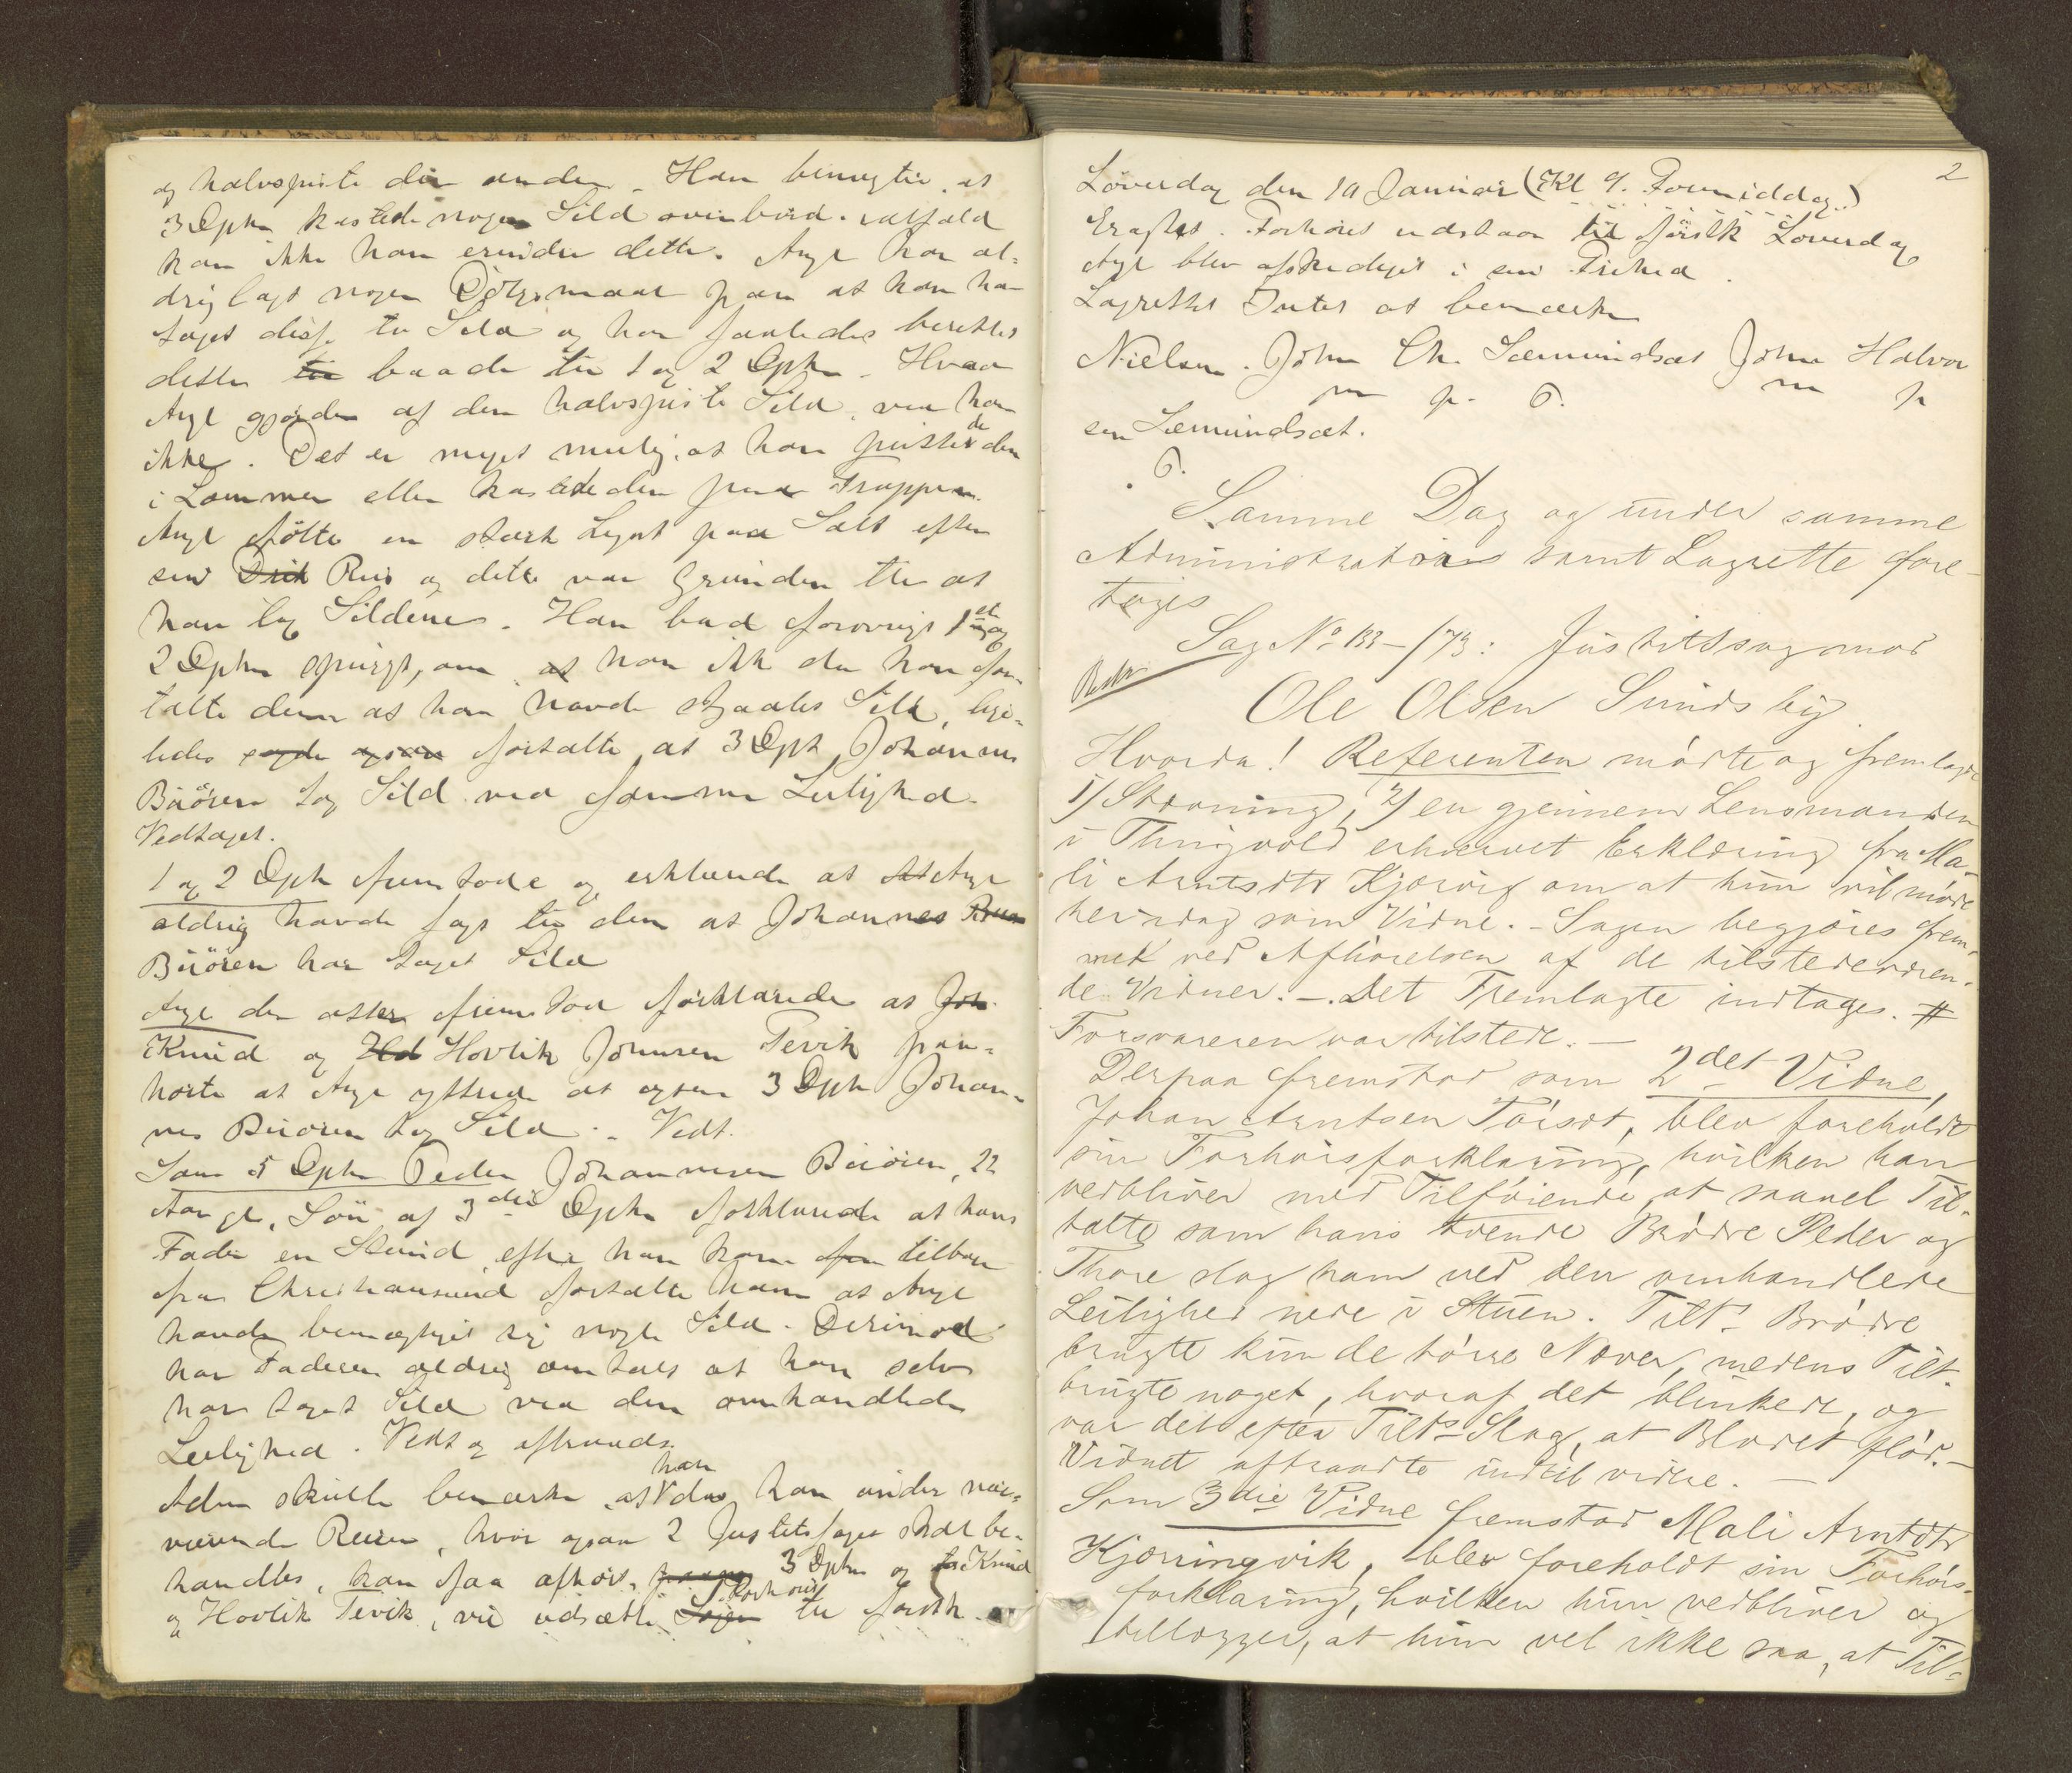 og halvspiste den anden. Han benegter, at
3 Dpkn kastede nogen Sild overbord. ialfald
kan ikke han erindre dette. Angl har al-
drig lagt nogen Dølgsmaal paa at han har
taget disse to Sild og har saaledes berettet
dette baade til 1 og 2 Dpkn. Hvad
Angl gjorde af den halvspiste Sild, ved han
ikke. Det er meget mulig, at han puttede den
i Lommen eller kastede den paa Trappen.
Angl følte en stærk Lyst paa Salt efter
sin Rus og dette var Grunden til at
han tog Sildene. Han bad forøvrigt 1ste og
2 Dpkn spurgt, om han ikke da han for-
talte dem at han havde stjaalet Sild, lige-
ledes fortalte, at 3 Dpk Johannes
Buøren tog Sild ved samme Leilighed.
Vedtaget.
1 og 2 Dpk fremstode og erklærede at Angl
aldrig havde sagt til dem at Johannes
Buøren har taget Sild
Angl der atter fremstod forklarede at
Knud og Hovlik Johnsen Tevik paa-
hørte at Angl yttrede at ogsaa 3 Dpk Johan-
nes Buøren tog Sild. - Vedt.
Som 5 Dpkn Peder Johannesen Buøren, 22
Aar gl, Søn af 3die Dpkn forklarede at hans
Fader en Stund efter han kom tilbage
fra Christiansund fortalte ham at Angl
havde bemægtiget sig nogle Sild. Derimod
har Faderen aldrig omtalt at han selv
har taget Sild ved den omhandlede
Leilighed. Vedt og aftraadte.
Adm skulde bemærke at han kan under nær-
værende Reise, hvor ogsaa 2 Justitssager skal be-
handles, kan faa afhørt 3 Dpkn og Knud
og Hovlik Tevik, vil udsætte Forhøret til førstk.
2
Løverdag den 10 Januar (Kl 9. Formiddag.)
Eragtet. Forhøret udstaar til førstk Løverdag
Angl blev afskediget i sin Frihed.
Lagrettet Intet at bemærke
Nielsen. John Ch. Sæmundsæt John Halvor
m p. G. m p
sen Sæmundsæt.
G.
Samme Dag og under samme
Administration samt Lagrette fore-
toges
Sag No 133-/79: Justitssag mod
Ole Olsen Sundsby.
Hvorda! Referenten mødte og fremlagde
1/ Stævning, 2/ en gjennem Lensmanden
i Thingvold erhvervet Erklæring fra Ma-
li Arntsdtr Kjørvig om at hun vil møde
her idag som Vidne. - Sagen begjæres frem-
met ved Afhørelsen af de tilstedeværen-
de Vidner. - Det Fremlagte indtages. #
Forsvareren var tilstede. -
Derpaa fremstod som 2det Vidne,
Johan Arntsen Torsæt, blev foreholdt
sin Forhørsforklaring, hvilken han
vedbliver med Tilføiende, at saavel Til-
talte som hans tvende Brødre Peder og
Thore slog ham ved den omhandlede
Leilighed nede i Stuen. Tilts Brødre
brugte kun de tørre Næver, medens Tilt.
brugte noget, hvoraf det blinkede, og
var det efter Tilts Slag, at Blodet flød. -
Vidnet aftraadte indtil videre. -
Som 3die Vidne fremstod Mali Arntdtr
Kjørringvik, blev foreholdt sin Forhørs-
forklaring, hvilken hun vedbliver og
tillægger, at hun vel ikke saa, at Til-